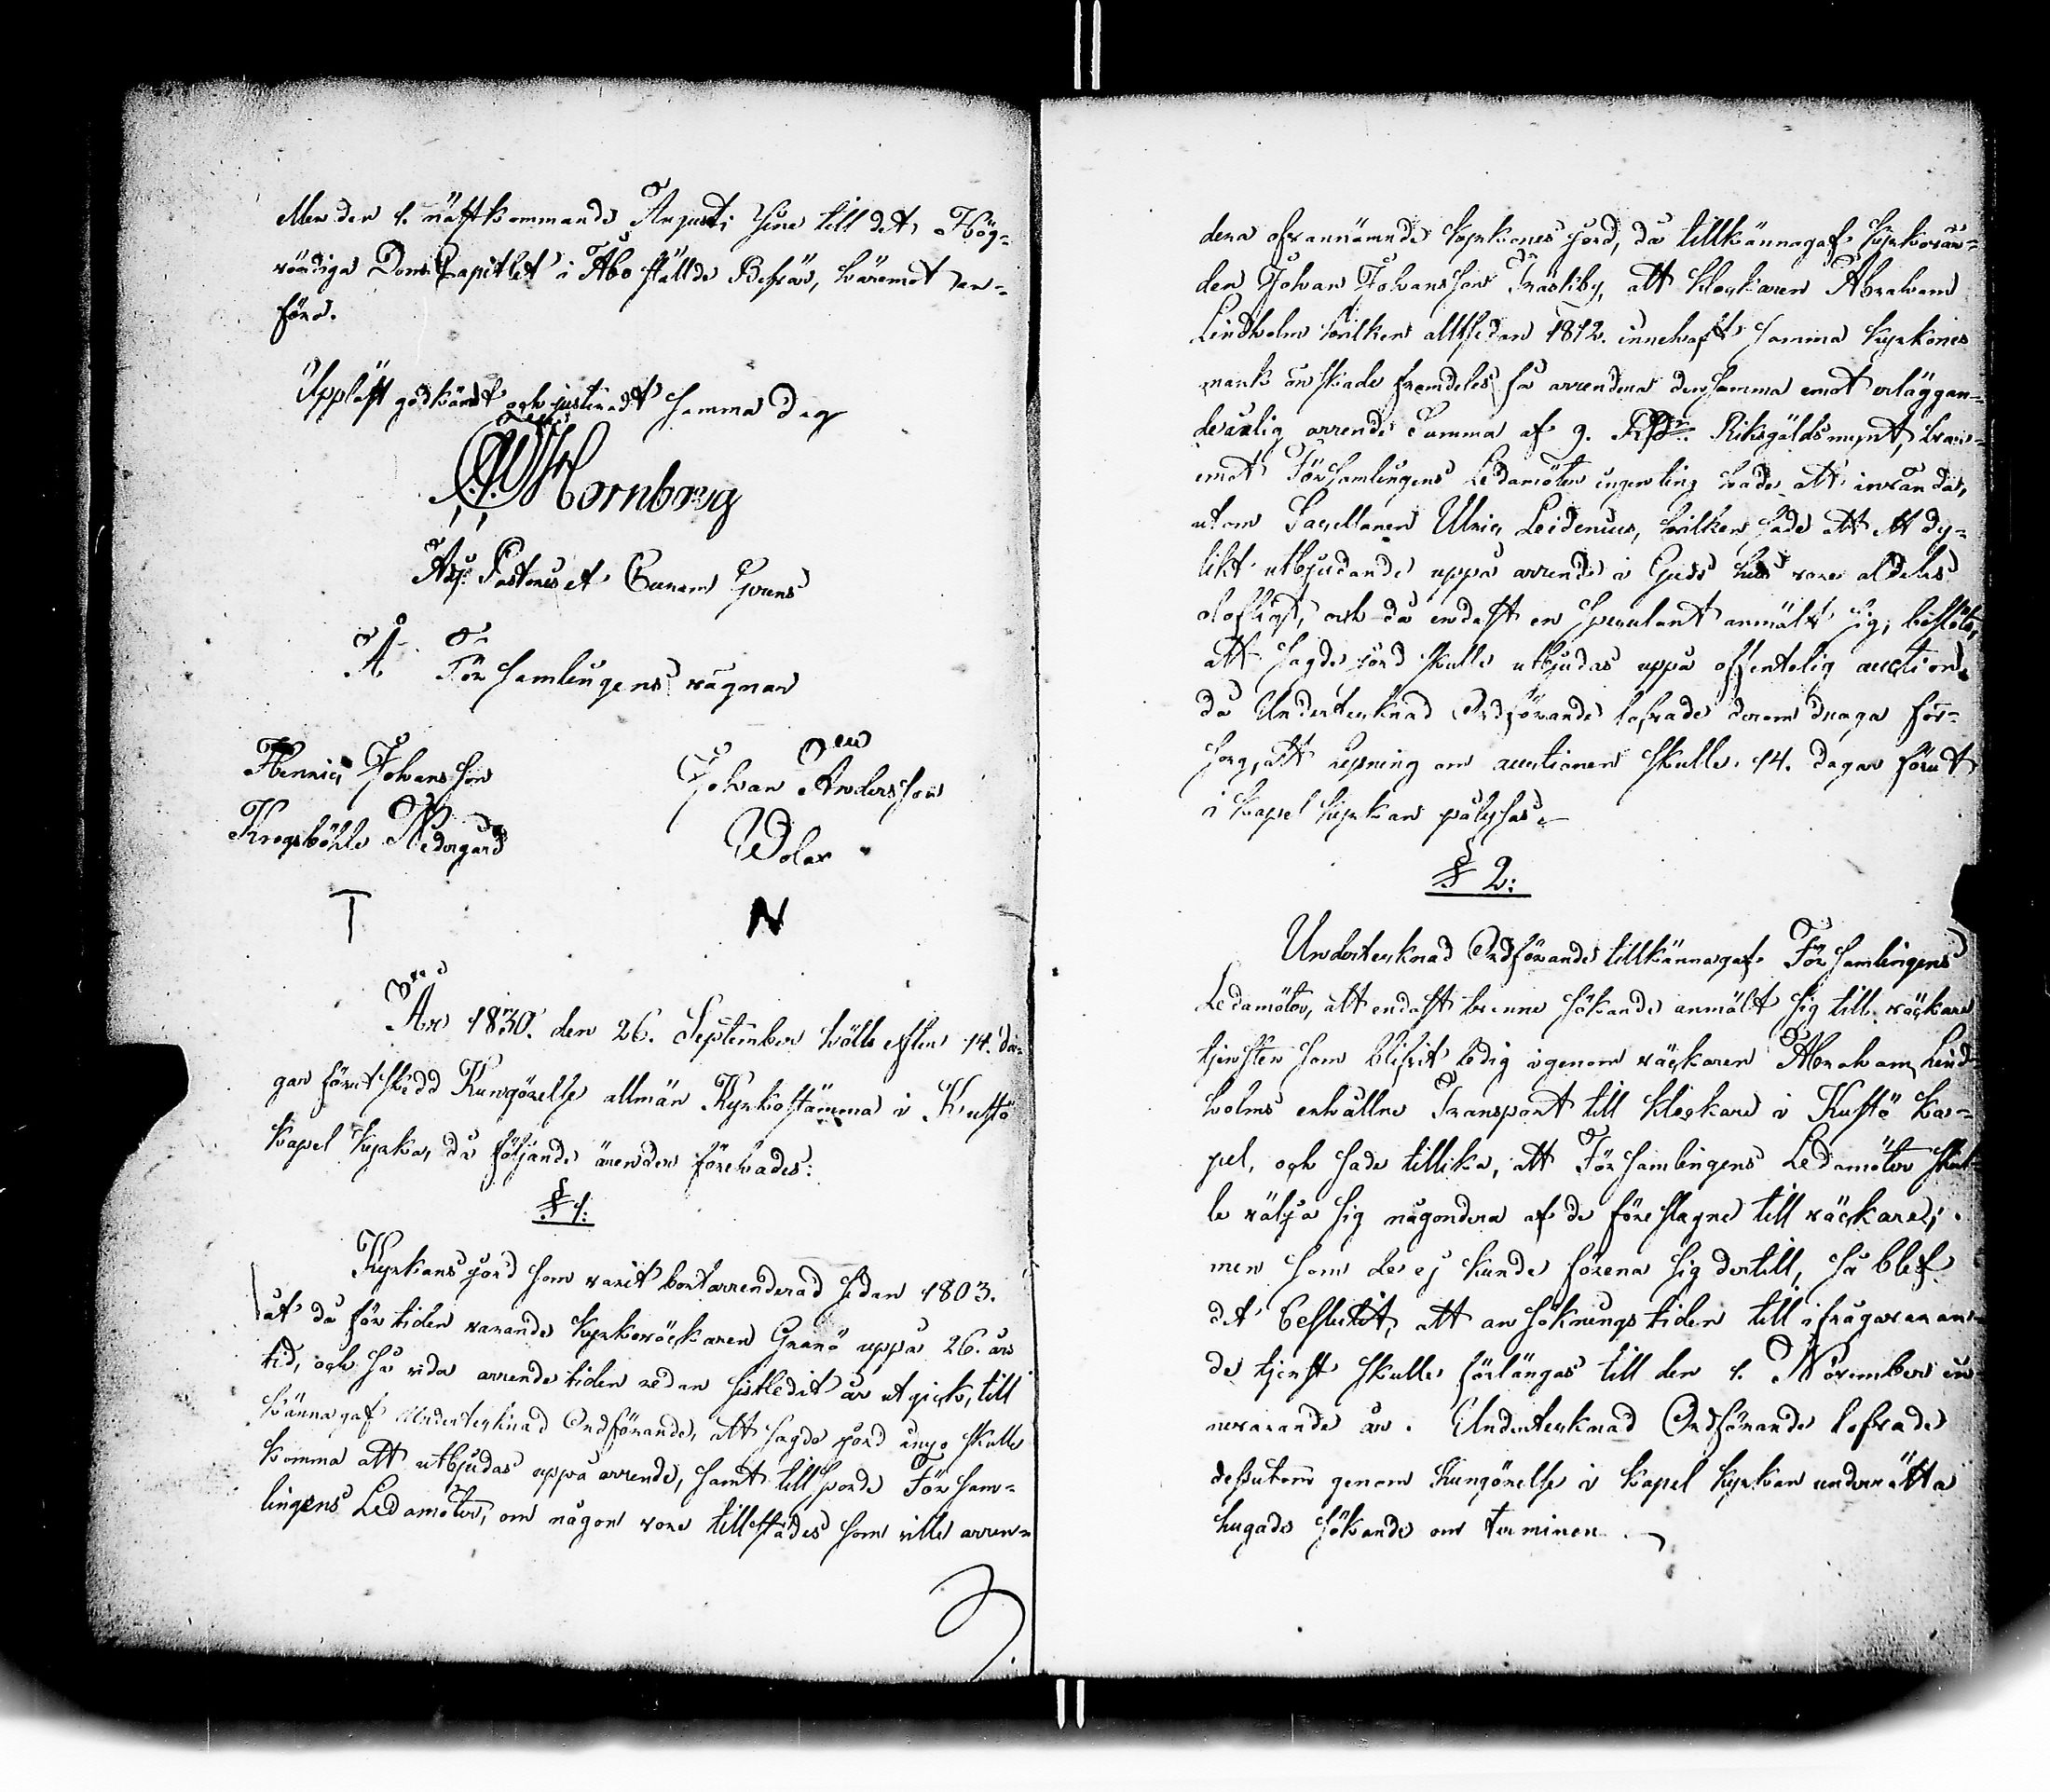 eller den 1. nästkommande Augusti sine till det Hög-
vördiga Dom Capitlet i Åbo ställde Besvär, häremot an-
föra.
Uppläst godkändt och justeradt samma dag
Hornborg
Adj. Pastoris et Curam Gerens
Å Församlingens vägnar
Henric Johansson
Krogsböhle Nedergård
T
Johan Andersson
Wolax
N
År 1830. den 26. September hölls efter 14. da-
gar förut skedd Kungörelse allmän Kyrkostämma i Kustö
kapel kyrka, då följande ärender förehades:
§ 1:
Kyrkans jord som varit bortarrenderad sedan 1803.
åt då för tiden varande kyrkoväckaren Granö uppå 26. års
tid, och så vida arrende tiden redan sistledit år utgick, till
kännagaf Undertecknad Ordförande, att sagde jord ånyo skulle
komma att utbjudas uppå arrende, samt tillsporde Försam-
lingens Ledamöter, om någon vore tillstädes som ville arren-
dera ofvannämnde kyrkones jord, då tillkännagaf kyrkovär-
den Johan Johansson Träskby, att klockaren Abraham
Lindholm hvilken alltsedan 1812. innehaft samma kyrkones
mark önskade framdeles få arrendera densamma emot erläggan-
de årlig arrende Summa af 9. Rdr. Riksgälds mynt, hvar-
emot Församlingens Ledamöter ingenting hade att invända,
utom Sacellanen Ulric Leidenius, hvilken sade att ett dy-
likt utbjudande uppå arrende i Guds hus vore aldeles
olofligt, och då endast en speculant anmält sig, beslöts,
att sagde jord skulle utbjudas uppå offentelig auction,
då Undertecknad Ordförande lofvade derom draga för-
sorg, att lysning om auctionen skulle 14. dagar förut
i kapel kyrkan pålysas.
§ 2:
Undertecknad Ordförande tillkännagaf Församlingens
Ledamöter, att endast tvenne sökande anmält sig till väckare
tjensten som blifvit ledig igenom väckaren Abraham Lind-
holms erhållne Transport till klockare i Kustö ka-
pel, och sade tillika, att Församlingens Ledamöter skul-
le välja sig någondera af de föreslagne till väckare;
men som de ej kunde förena sig dertill, så blef
det beslutit, att ansöknings tiden till ifrågavaran-
de tjenst skulle förlängas till den 1. November in-
nevarande år. Undertecknad Ordförande lofvade
dessutom genom Kungörelse i kapel kyrkan underrätta
hugade sökande om terminen.